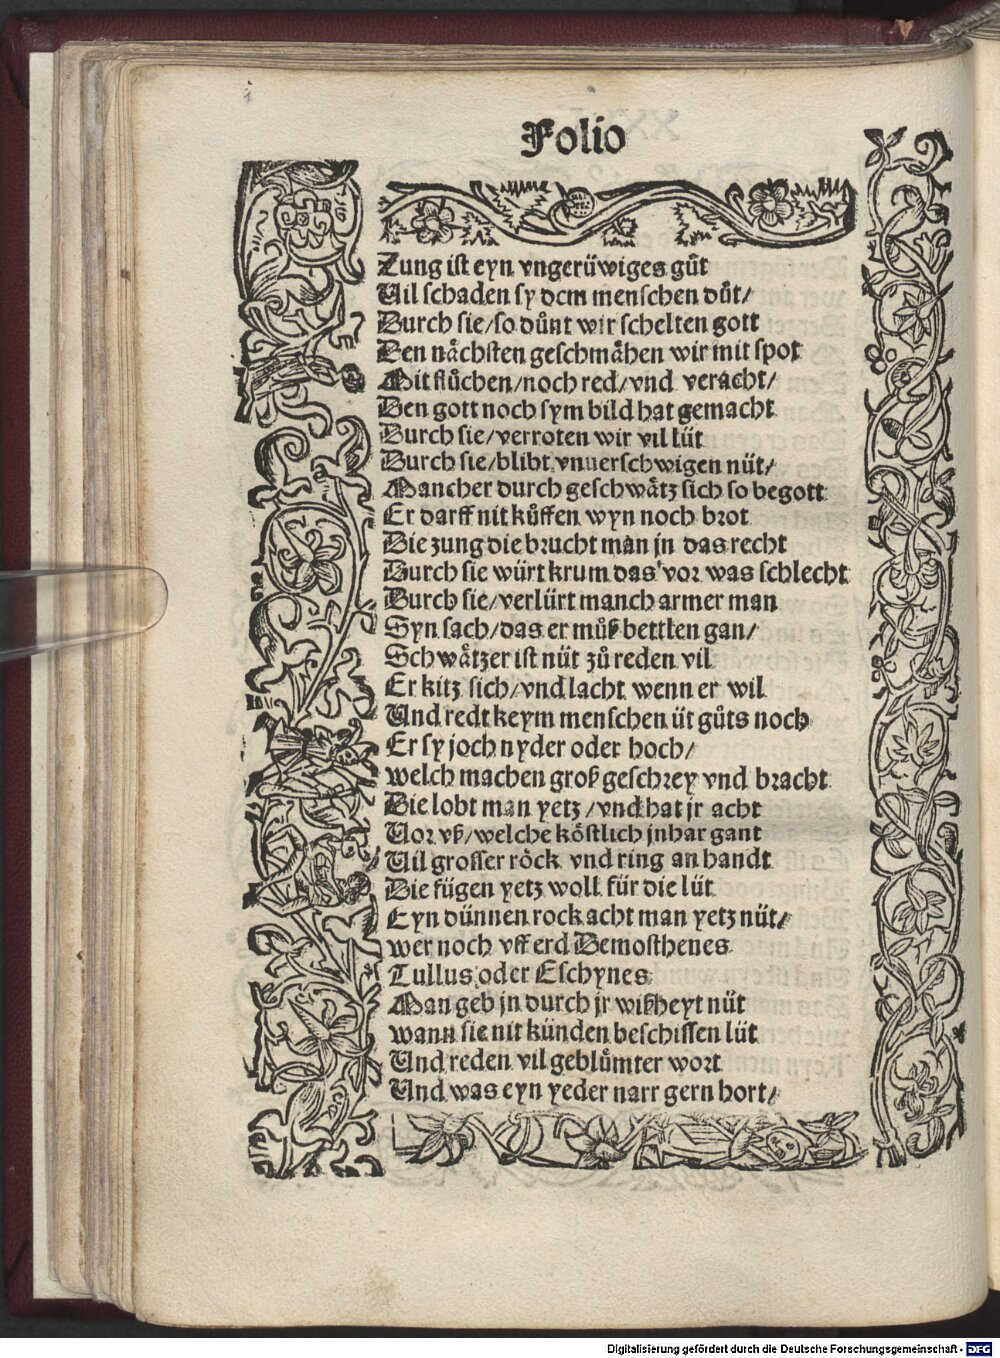 Folio
Zung ist eyn vngerüwiges gůt
Uil schaden sy dem menschen důt/
Durch sie/so důnt wir schelten gott
Den nächsten geschmähen wir mit spot
Mit flůchen/noch red/vnd veracht/
Den gott noch sym bild hat gemacht
Durch sie/verroten wir vil lüt
Durch sie/blibt vnuerschwigen nüt/
Mancher durch geschwätz sich so begott
Er darff nit kůffen wyn noch brot
Die zung die brucht man jn das recht
Durch sie würt krum das vor was schlecht
Durch sie/verlürt manch armer man
Syn sach/das er můß bettlen gan/
Schwätzer ist nüt zů reden vil
Er kitz sich/vnd lacht wenn er wil
Und redt keym menschen üt gůts noch
Er sy joch nyder oder hoch/
welch machen groß geschrey vnd bracht
Die lobt man yetz/vnd hat jr acht
Uor vß/welche köstlich jnhar gant
Uil grosser röck vnd ring an handt
Die fügen yetz woll für die lüt
Eyn dünnen rock acht man yetz nüt/
wer noch vff erd Demosthenes
Tullus oder Eschynes
Man geb jn durch jr wißheyt nüt
wann sie nit künden beschissen lüt
Und reden vil geblůmter wort
Und was eyn yeder narr gern hort/
Digitalisierung gefördert durch die Deutsche Forschungsgemeinschaft - DFG